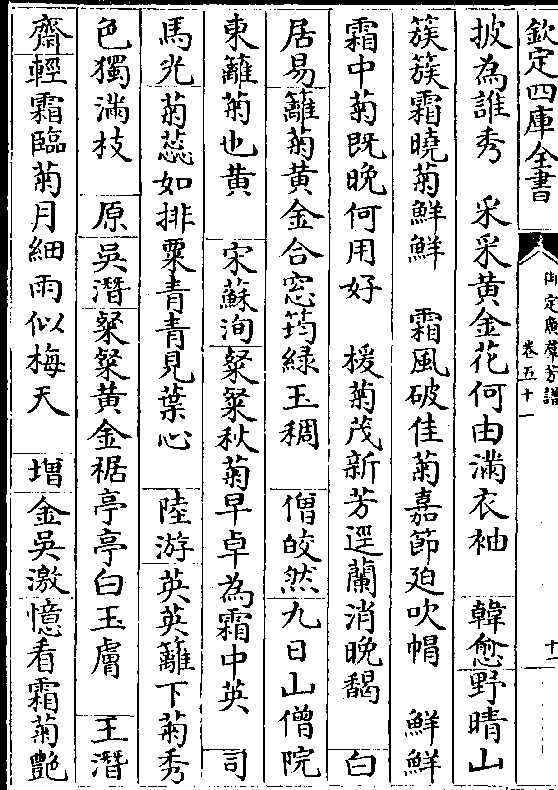 欽定四庫全書
御定廣羣芳譜
卷五十一
十
披為誰秀　采采黄金花何由滿衣袖　韓愈野晴山
簇簇霜曉菊鮮鮮　霜風破佳菊嘉節廹吹㡌　鮮鮮
霜中菊既晚何用好　楥菊茂新芳逕蘭消晚馤　白
居易籬菊黄金合窓筠緑玉稠　僧皎然九日山僧院
東籬菊也黄　宋蘇洵粲粲秋菊早卓為霜中英　司
馬光菊蕊如排粟青青見葉心　陸游英英籬下菊秀
色獨滿枝　原吳潛粲粲黄金裾亭亭白玉膚　王潛
齋輕霜臨菊月細雨似梅天　増金吳激憶看霜菊艷